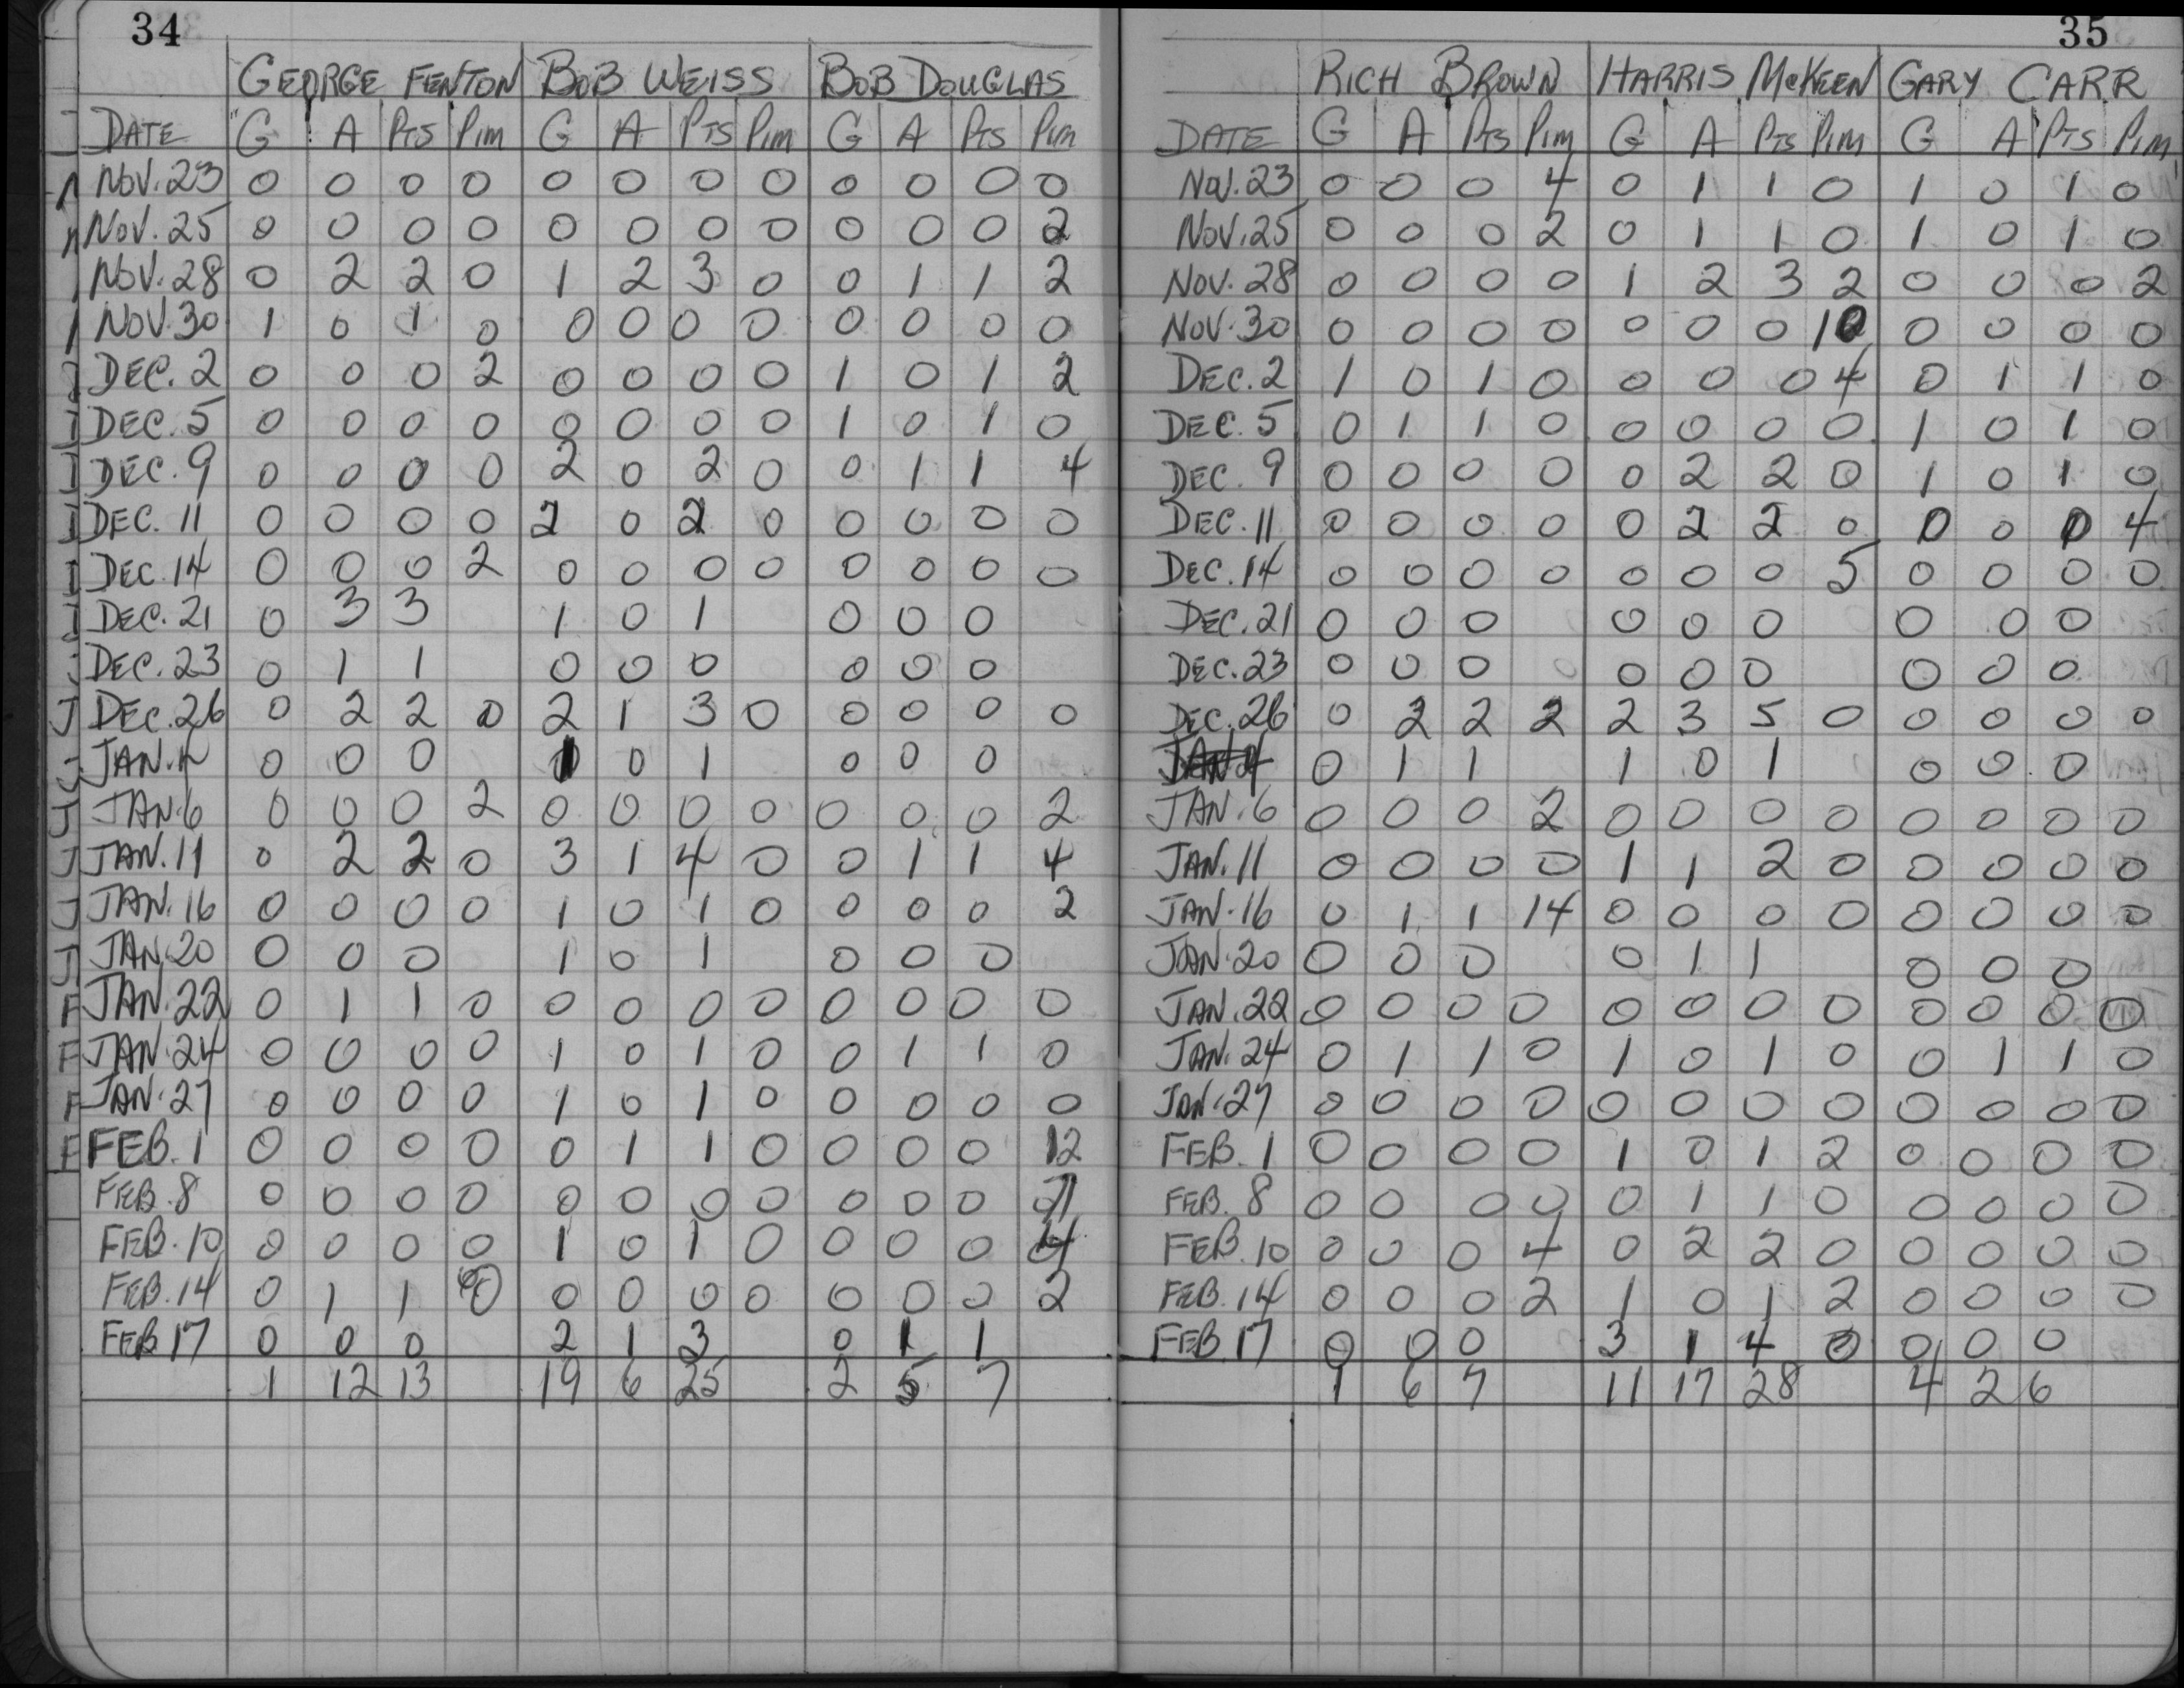 34
GEORGE FENTON BOB WEISS BOB DOUGLAS
DATE G A PTS PIM G A PTS PIM G A PTS PIM
NOV. 23 0 0 0 0 0 0 0 0 0 0 0 0
NOV. 25 0 0 0 0 0 0 0 0 0 0 0 2
NOV. 28 0 2 2 0 1 2 3 0 0 1 1 2
NOV. 30 1 0 1 0 0 0 0 0 0 0 0 0
DEC. 2 0 0 0 2 0 0 0 0 1 0 1 2
DEC. 5 0 0 0 0 0 0 0 0 1 0 1 0
DEC. 9 0 0 0 0 2 0 2 0 0 1 1 4
DEC. 11 0 0 0 0 2 0 2 0 0 0 0 0
DEC. 14 0 0 0 2 0 0 0 0 0 0 0 0
DEC. 21 0 3 3 1 0 1 0 0 0
DEC. 23 0 1 1 0 0 0 0 0 0
DEC. 26 0 2 2 0 2 1 3 0 0 0 0 0
JAN. 4 0 0 0 1 0 1 0 0 0
JAN. 6 0 0 0 2 0 0 0 0 0 0 0 2
JAN. 11 0 2 2 0 3 1 4 0 0 1 1 4
JAN. 16 0 0 0 0 1 0 1 0 0 0 0 2
JAN. 20 0 0 0 1 0 1 0 0 0
JAN. 22 0 1 1 0 0 0 0 0 0 0 0 0
JAN. 24 0 0 0 0 1 0 1 0 0 1 1 0
JAN. 27 0 0 0 0 1 0 1 0 0 0 0 0
FEB. 1 0 0 0 0 0 1 1 0 0 0 0 12
FEB. 8 0 0 0 0 0 0 0 0 0 0 0
FEB. 10 0 0 0 0 1 0 1 0 0 0 0
FEB. 14 0 1 1 0 0 0 0 0 0 0 2
FEB 17 0 0 0 2 1 3 0 1 1
1 12 13 19 6 25 2 5 7
35
RICH BROWN HARRIS McKEEN GARY CARR
DATE G A PTS PIM G A PTS PIM G A PTS PIM
NOV. 23 0 0 0 4 0 1 1 0 1 0 1 0
NOV. 25 0 0 0 2 0 1 1 0 1 0 1 0
NOV. 28 0 0 0 0 1 2 3 2 0 0 0 2
NOV. 30 0 0 0 0 0 0 0 10 0 0 0 0
DEC. 2 1 0 1 0 0 0 0 4 0 1 1 0
DEC. 5 0 1 1 0 0 0 0 0 1 0 1 0
DEC. 9 0 0 0 0 0 2 2 0 1 0 1 0
DEC. 11 0 0 0 0 0 2 2 0 0 0 0 4
DEC. 14 0 0 0 0 0 0 0 5 0 0 0 0
DEC. 21 0 0 0 0 0 0 0 0 0
DEC. 23 0 0 0 0 0 0 0 0 0
DEC. 26 0 2 2 2 2 3 5 0 0 0 0 0
JAN 4 0 1 1 1 0 1 0 0 0
JAN. 6 0 0 0 2 0 0 0 0 0 0 0 0
JAN. 11 0 0 0 0 1 1 2 0 0 0 0 0
JAN. 16 0 1 1 14 0 0 0 0 0 0 0 0
JAN. 20 0 0 0 0 1 1 0 0 0
JAN. 22 0 0 0 0 0 0 0 0 0 0 0 0
JAN. 24 0 1 1 0 1 0 1 0 0 1 1 0
JAN. 27 0 0 0 0 0 0 0 0 0 0 0 0
FEB. 1 0 0 0 0 1 0 1 2 0 0 0 0
FEB. 8 0 0 0 0 0 1 1 0 0 0 0 0
FEB. 10 0 0 0 4 0 2 2 0 0 0 0 0
FEB. 14 0 0 0 2 1 0 1 2 0 0 0 0
FEB. 17 0 0 0 3 1 4 0 0 0 0
1 6 7 11 17 28 4 2 6